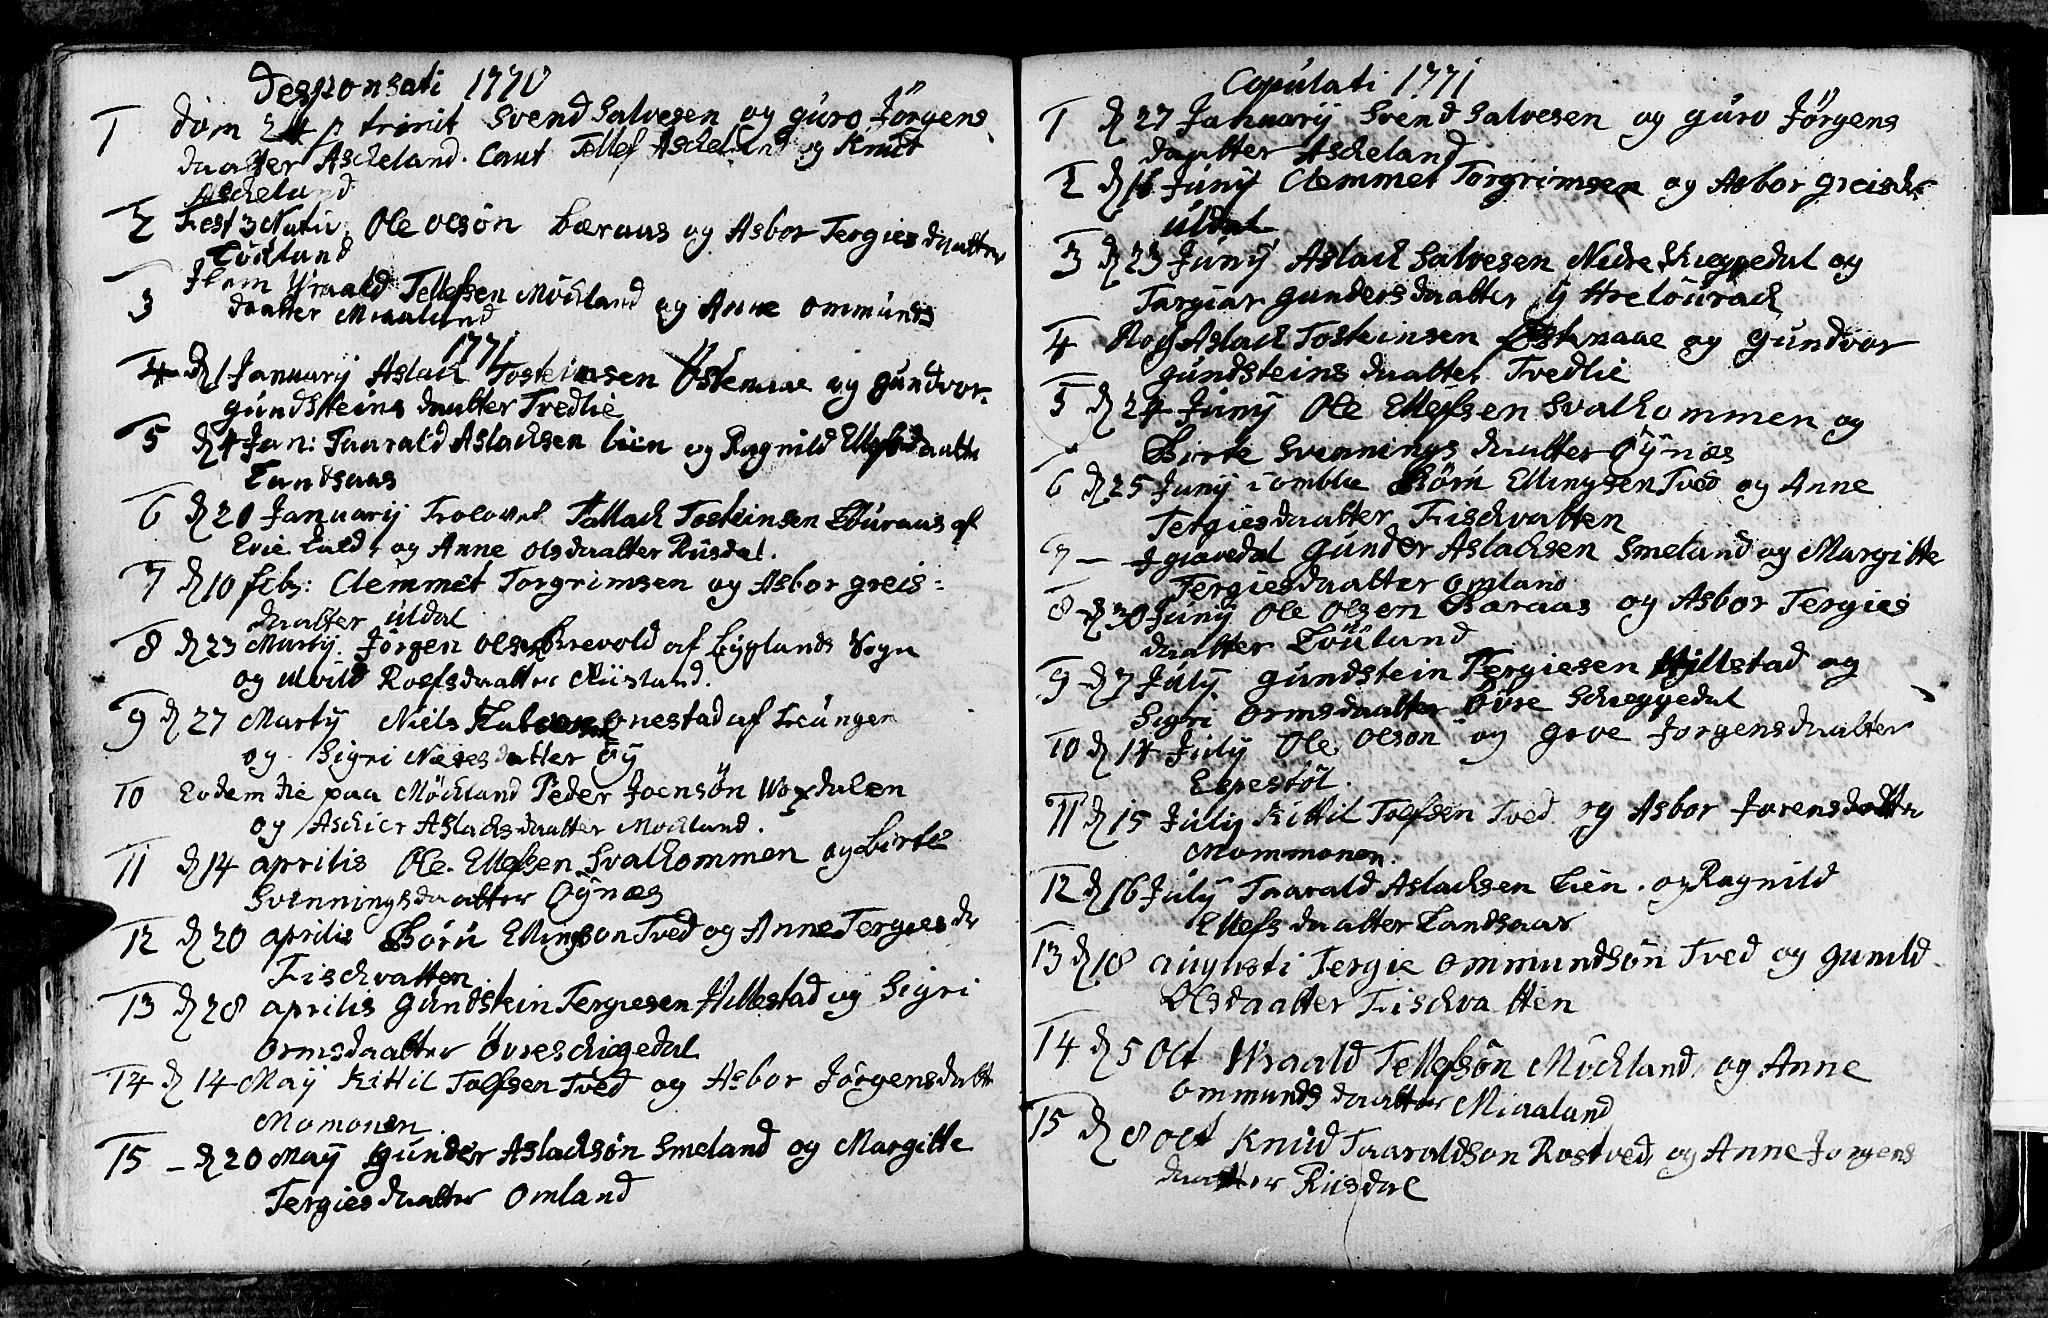 Desponsati 1770
1 Dom 24 p trinit Svend Salvesen og guro Jørgens
daatter Ascheland. Caut Tellef Ascheland og Knut
Ascheland
2 Fest 3 Nativ. Ole olsøn Bæraas og Asbor Tergies daatter
Løuland
3 Item Wraald Tellefsen Möchland og Anne ommunds
daatter Miaaland
1771
4 d 1 January Aslach Tosteinsen Östenaae og gundvor
gundsteins daatter Tvedlie
5 d 4 Jan: Taarald Aslachsen lien og Ragnild Ellefsdaatter
Landsaas
6 d 20 January Trolovet Tallach Tosteinsen Löuraas af
Evie og Anne Olsdaatter Riisdal.
7 d 10 feb: Clemmet Torgrimsen og Asbor greis=
daatter uldal
8 d 23 Martij. Jörgen olsen af Byglands Sogn
og Roefsdaatter Riisland.
9 d 27 Martij Niels onestad af Treungen
og Sigri Næsesdatter Öy
10 Eodem die paa Möchland Peder Joensön Woxdalen
og Aschier Aslachsdaatter Mochland.
11 d 14 aprilis Ole Ellefsen Svalhommen og Birte
Svenningsdaatter Öynæs
12 d 20 aprilis Börü Ellingson Tved og Anne Tergiesdr
Fischvatten
13 d 28 aprilis Gundstein Tergiesen Hillestad og Sigri
Ormsdaatter Övreschiegedal
14 d 14 Maij Kittil Tolfsen Tved og Asbor Jörgensdatt
Momonen.
15 - d 20 Maij Gunder Aslachsön Smeland og Margitte
Tergiesdaatter Omland
Copulati 1771
1 d 27 January Svend Salvesen og guro Jörgens
daatter Ascheland
2 d 16 Junij Clemmet Torgrimsen og Asbor greisdr
uldal
3 d 23 Junij Aslach Salvesen Nedre Skieggedal og
Targiær gundersdaatter
4 Nog Aslach Tosteinsen Östenaae og Gundvor
gundsteins daatter Tvedlie
5 d 24 Junij Ole Ellefsen Svalhommen og
Birte Svennings daatter Öynæs
6 d 25 Junij i omblie Börü Ellingsen Tved og Anne
Tergiesdaatter Fischvatten
7 - J giøvedal Gunder Aslachsen Smeland og Margitte
Tergiesdaatter omland
8 d 30 Junij Ole Olsen Baraas og Asbor Tergies
daatter Löuland
9 d 7 Julij gundstein Tergiesen Hillstad og
Sigri Ormsdaatter Övre Schieggedal
10 d 14 Julij Ole olson og Gove Jorgensdaatter
Espestöl.
11 d 15 Julij Kittil Tolfsen Tved og Asbor Jorensdatter
Mommonen.
12 d 16 Julij Taarald Aslachsen Lien og Ragnild
Ellefs daatter Landsaas
13 d 18 augusti Tergie Ommundsön Tved og gunild
Olsdaatter Fischvatten
14 d 5 Oct Wraald Tellefsön Möchland og Anne
ommunds daatter Miaaland
15 d 8 Oct Knud Taaraldson Rostved og Anne Jorgens
daatter Riisdal